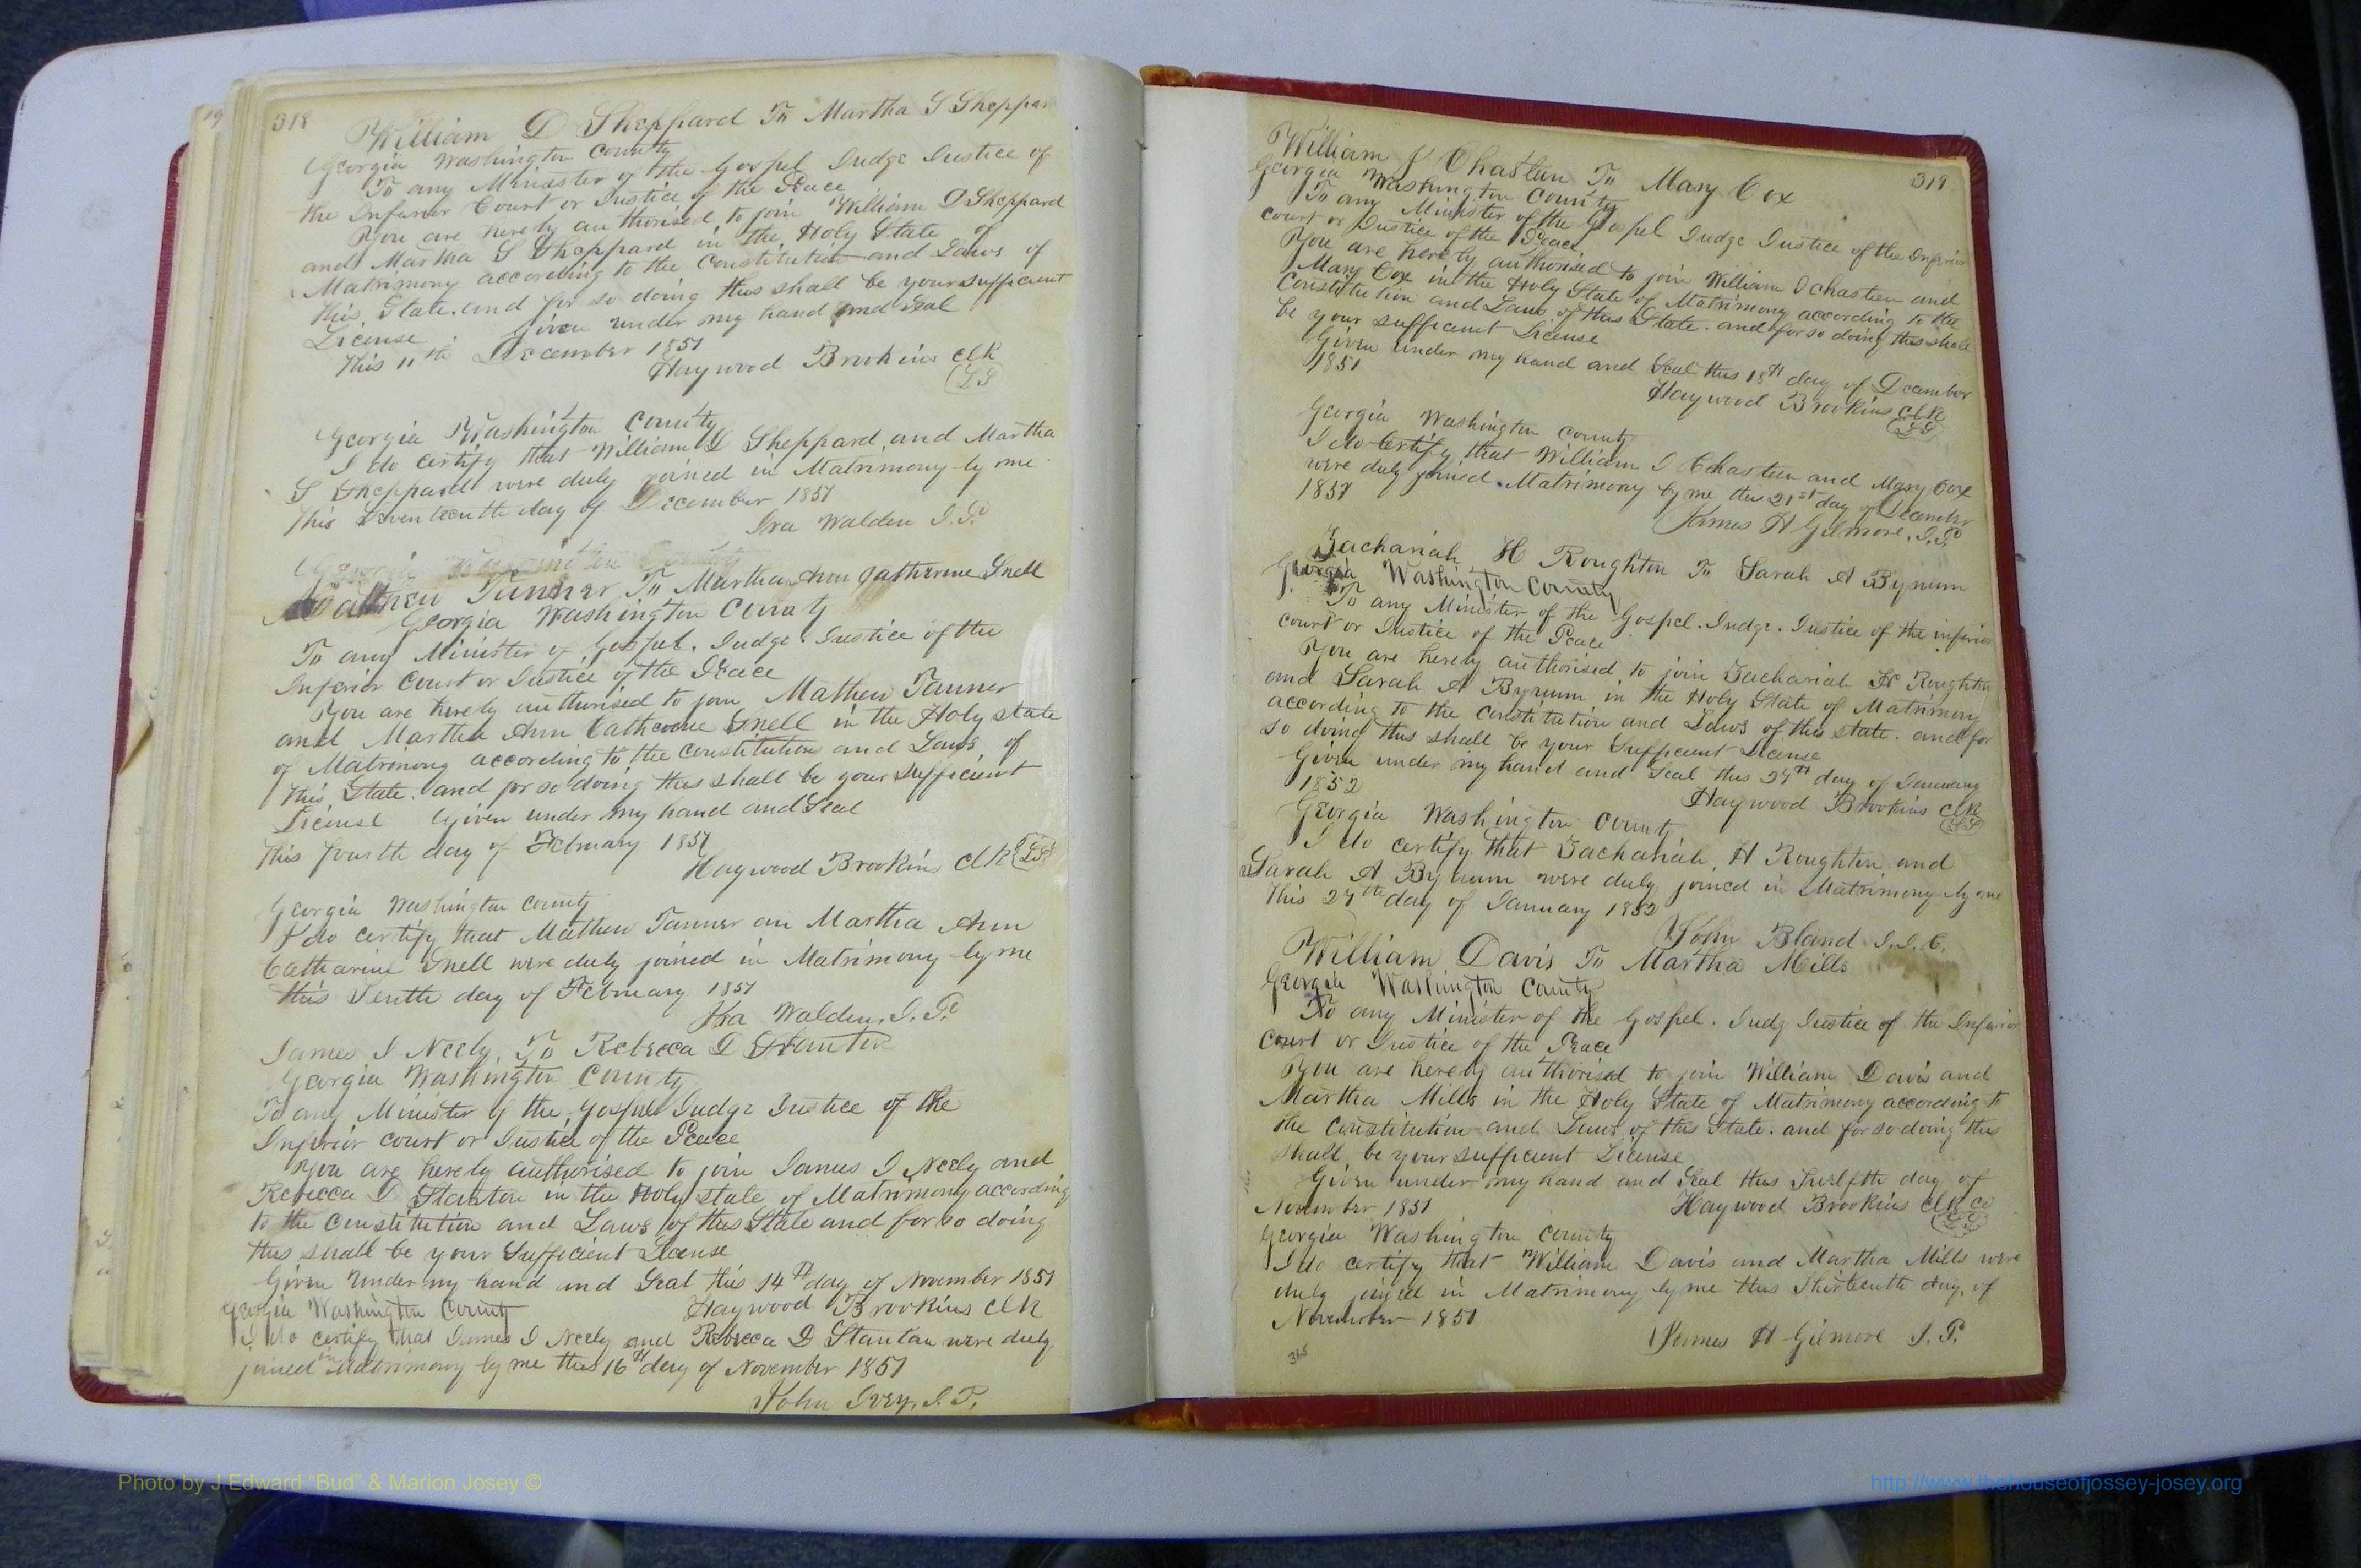 318
William D Sheppard To Martha S Sheppar
Georgia Washington County
To any Minister of the Gospel Judge Justice of
the Inferior Court or Justice of the Peace
You are hereby authorised to join William D Sheppard
and Martha S Sheppard in the Holy State of
Matrimony according to the Constitution and Laws of
this State. and for so doing this shall be your sufficient
License Given under my hand and Seal
This 11th December 1851
Haywood Brookins Clk
LS
Georgia Washington County
I do certify that William D Sheppard and Martha
S Sheppard were duly joined in Matrimony by me
This Seventeenth day of December 1851
Ira Walden J.P.
Georgia Washington County
Mathew Tanner To Martha Ann Catherine Snell
Georgia Washington County
To any Minister of Gospel. Judge. Justice of the
Inferior Court or Justice of the Peace
You are hereby authorised to join Mathew Tanner
and Martha Ann Catherine Snell in the Holy state
of Matrimony according to the constitution and Laws of
this State. and for so doing this shall be your sufficient
License Given under my hand and Seal
This fourth day of February 1851
Haywood Brookins Clk LS
Georgia Washington County
I do certify that Mathew Tanner an Martha Ann
Catharine Snell were duly joined in Matrimony by me
this Tenth day of February 1851
Ira Walden. J.P.
James J Neely. To Rebecca D Stanton
Georgia Washington County
To any Minister of the Gospel Judge Justice of the
Inferior court or Justice of the Peace
You are hereby authorised to join James J Neely and
Rebecca D Stanton in the Holy state of Matrimony according
to the constitution and Laws of this State and for so doing
this shall be your Sufficient License
Given under my hand and Seal this 14th day of November 1851
Georgia Washington County Haywood Brookins Clk
I do certify that James J Neely and Rebecca D Stantan were duly
joined in Matrimony by me this 16th day of November 1851
John Ivey. J.P.
319
William J Chasteen To Mary Cox
Georgia Washington County
To any Minister of the Gospel Judge Justice of the Inferior
court or Justice of the Peace
You are hereby authorised to join William J Chasteen and
Mary Cox in the Holy State of Matrimony according to the
Constitution and Laws of this State. and for so doing this shall
be your sufficient License
Given under my hand and Seal this 18th day of December
1851
Haywood Brookins Clk
LS
Georgia Washington County
I do Certify that William J Chasteen and Mary Cox
were duly joined Matrimony by me this 21st day of December
1851
James H Gilmore. J.P.
Zachariah H Roughton To Sarah A Bynum
Georgia Washington County
To any Minister of the Gospel. Judge. Justice of the inferior
court or Justice of the Peace
You are hereby authorised to join Zachariah H Roughton
and Sarah A Bynum in the Holy State of Matrimony
according to the constitution and Laws of this state. and for
so doing this shall be your Sufficient License
Given under my hand and Seal this 27th day of January
1852
Haywood Brookins Clk
LS
Georgia Washington County
I do certify that Zachariah H Roughton and
Sarah A Bynum were duly joined in Matrimony by me
This 27th day of January 1852
John Bland J.I.C.
William Davis To Martha Mills
Georgia Washington County
To any Minister of the Gospel. Judg Justice of the Inferior
court or Justice of the Peace
You are hereby authorised to join William Davis and
Martha Mills in the Holy State of Matrimony according to
the Constitution and Laws of this State. and for so doing this
shall be your sufficient License
Given under my hand and Seal this Twelfth day of
November 1851
Haywood Brookins Clk Co
LS
Georgia Washington County
I do certify that William Davis and Martha Mills were
duly joined in Matrimony by me this Thirteenth day of
November 1851
James H Gilmore J.P.
365
Photo by J Edward "Bud" & Marion Josey ©
http://www.thehouseofjossey-josey.org